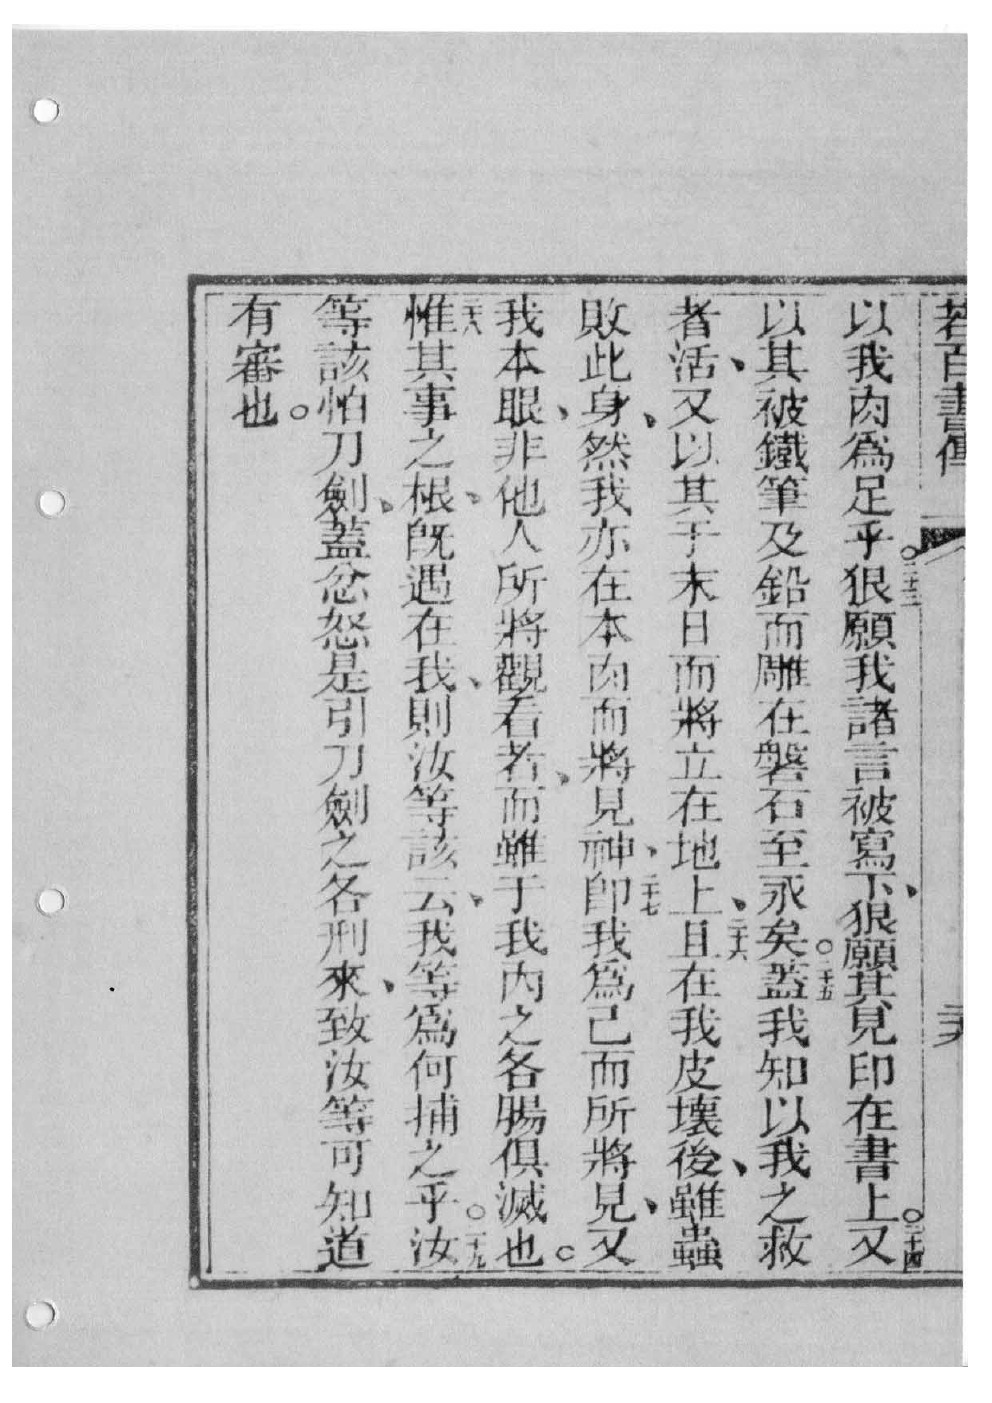 若百書傳
二十八
以我肉爲足乎。二十三狠願我諸言被寫下、狠願其見印在書上。二十四又
以其被鐵筆及鉛而雕在磐石至永矣。二十五蓋我知以我之救
者活、又以其于末日而將立在地上、二十六且在我皮壞後、雖蟲
敗此身、然我亦在本肉而將見神、二十七卽我爲己而所將見、又
我本眼、非他人所將觀看者、而雖于我內之各腸俱滅也。
二十八惟其事之根、旣遇在我、則汝等該云、我等爲何捕之乎。二十九汝
等該怕刀劍、蓋忿怒是引刀劍之各刑來、致汝等可知道
有審也。